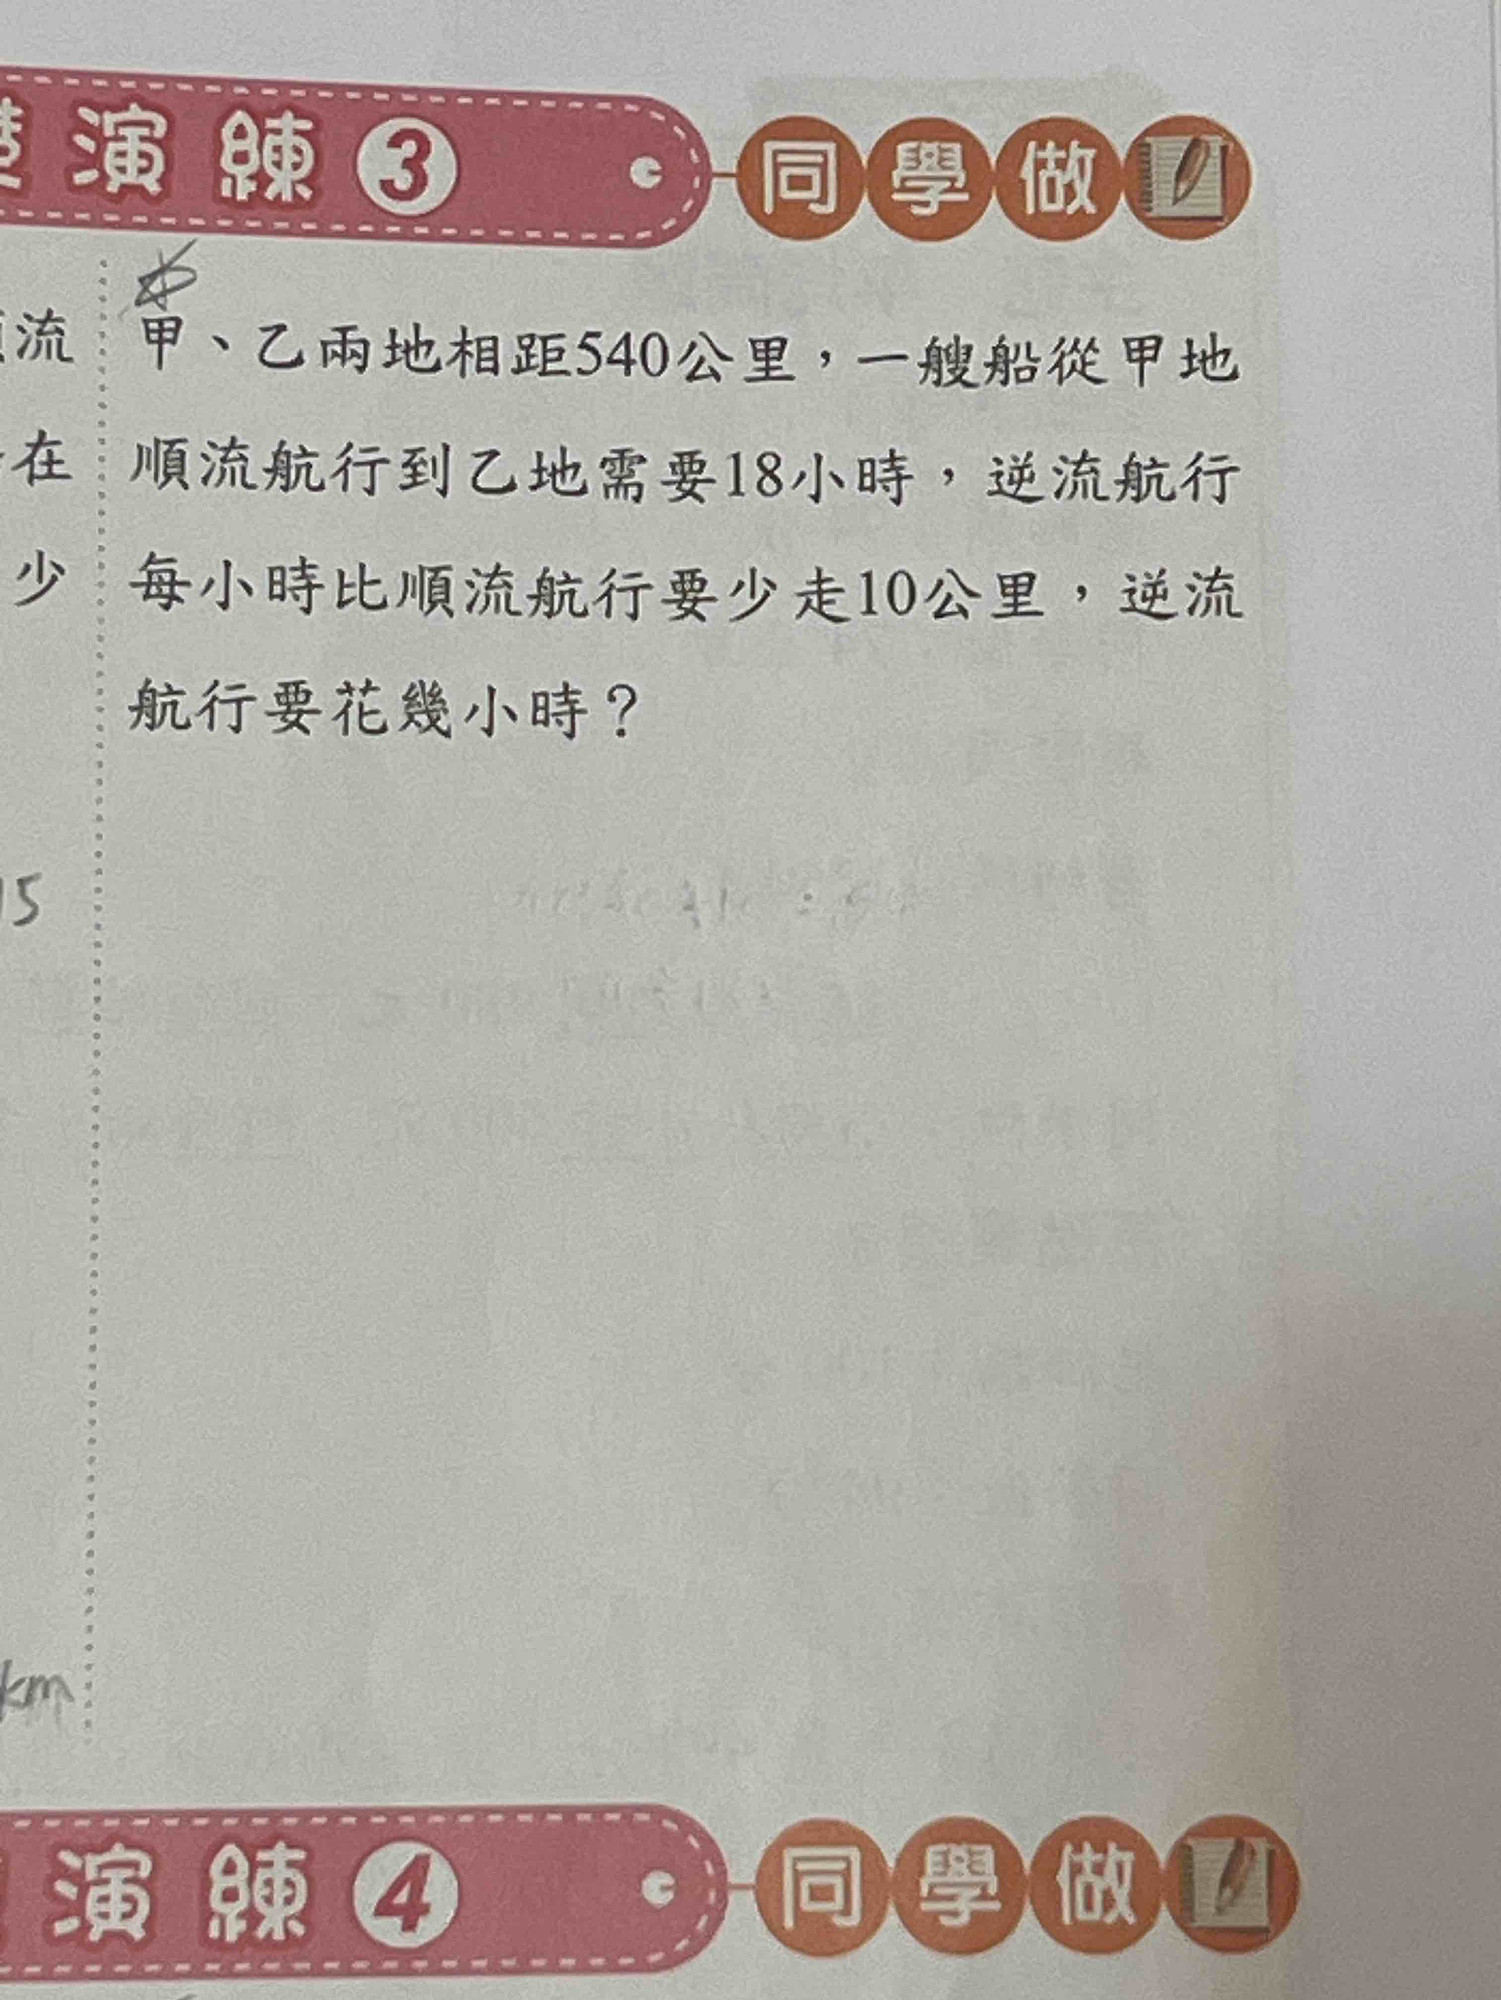 演練3 同學做
流
甲、乙兩地相距540公里,一艘船從甲地
在
順流航行到乙地需要18小時,逆流航行
少
每小時比順流航行要少走10公里,逆流
航行要花幾小時?
15
km
演練4 同學做